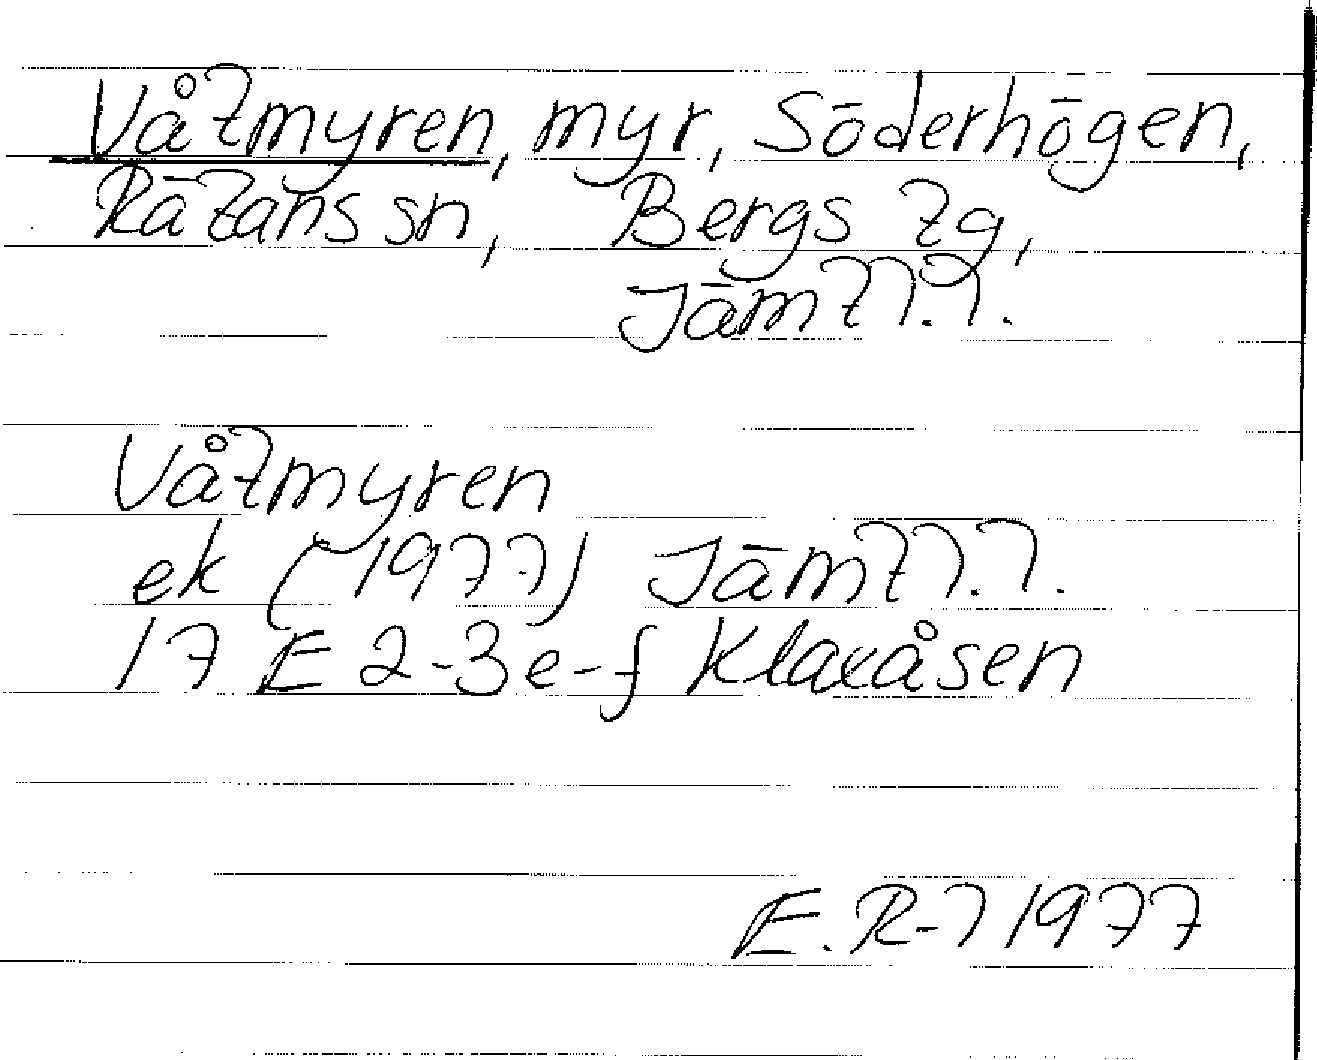 Våtmyren, myr, Söderhögen,
Rätans sn, Bergs tg,
Jämtl.l.
Våtmyren
ek (1977) Jämtl.l.
17 E 2-3 e-f Klaxåsen
E. R-l 1977